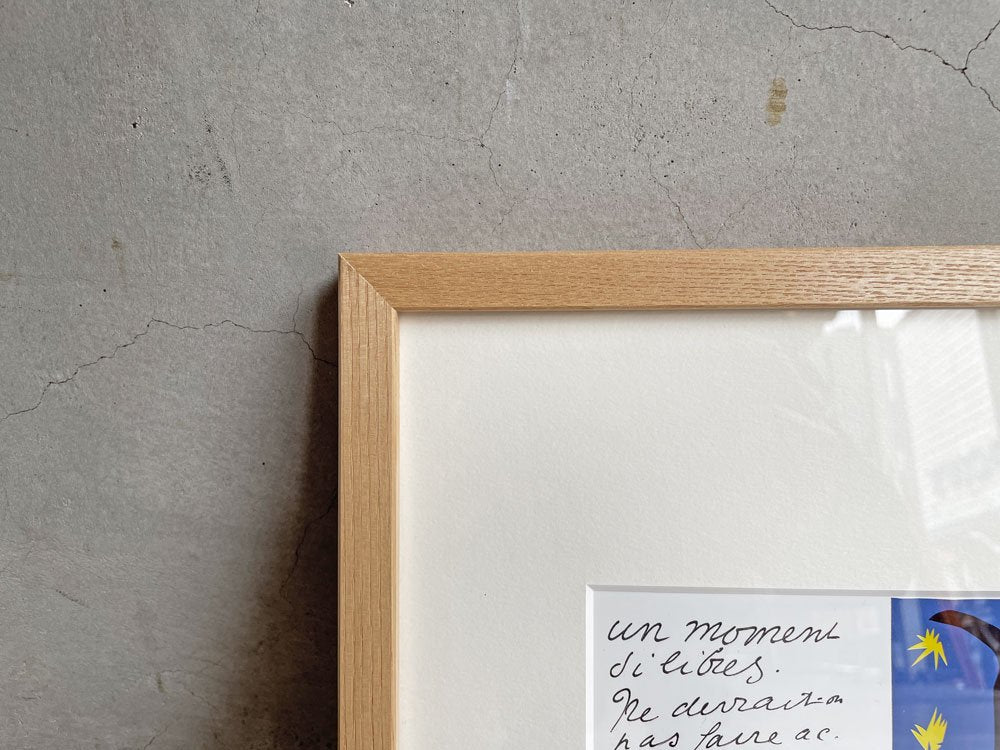 un moment
si libres.
Ne devrait-on
pas faire ac-